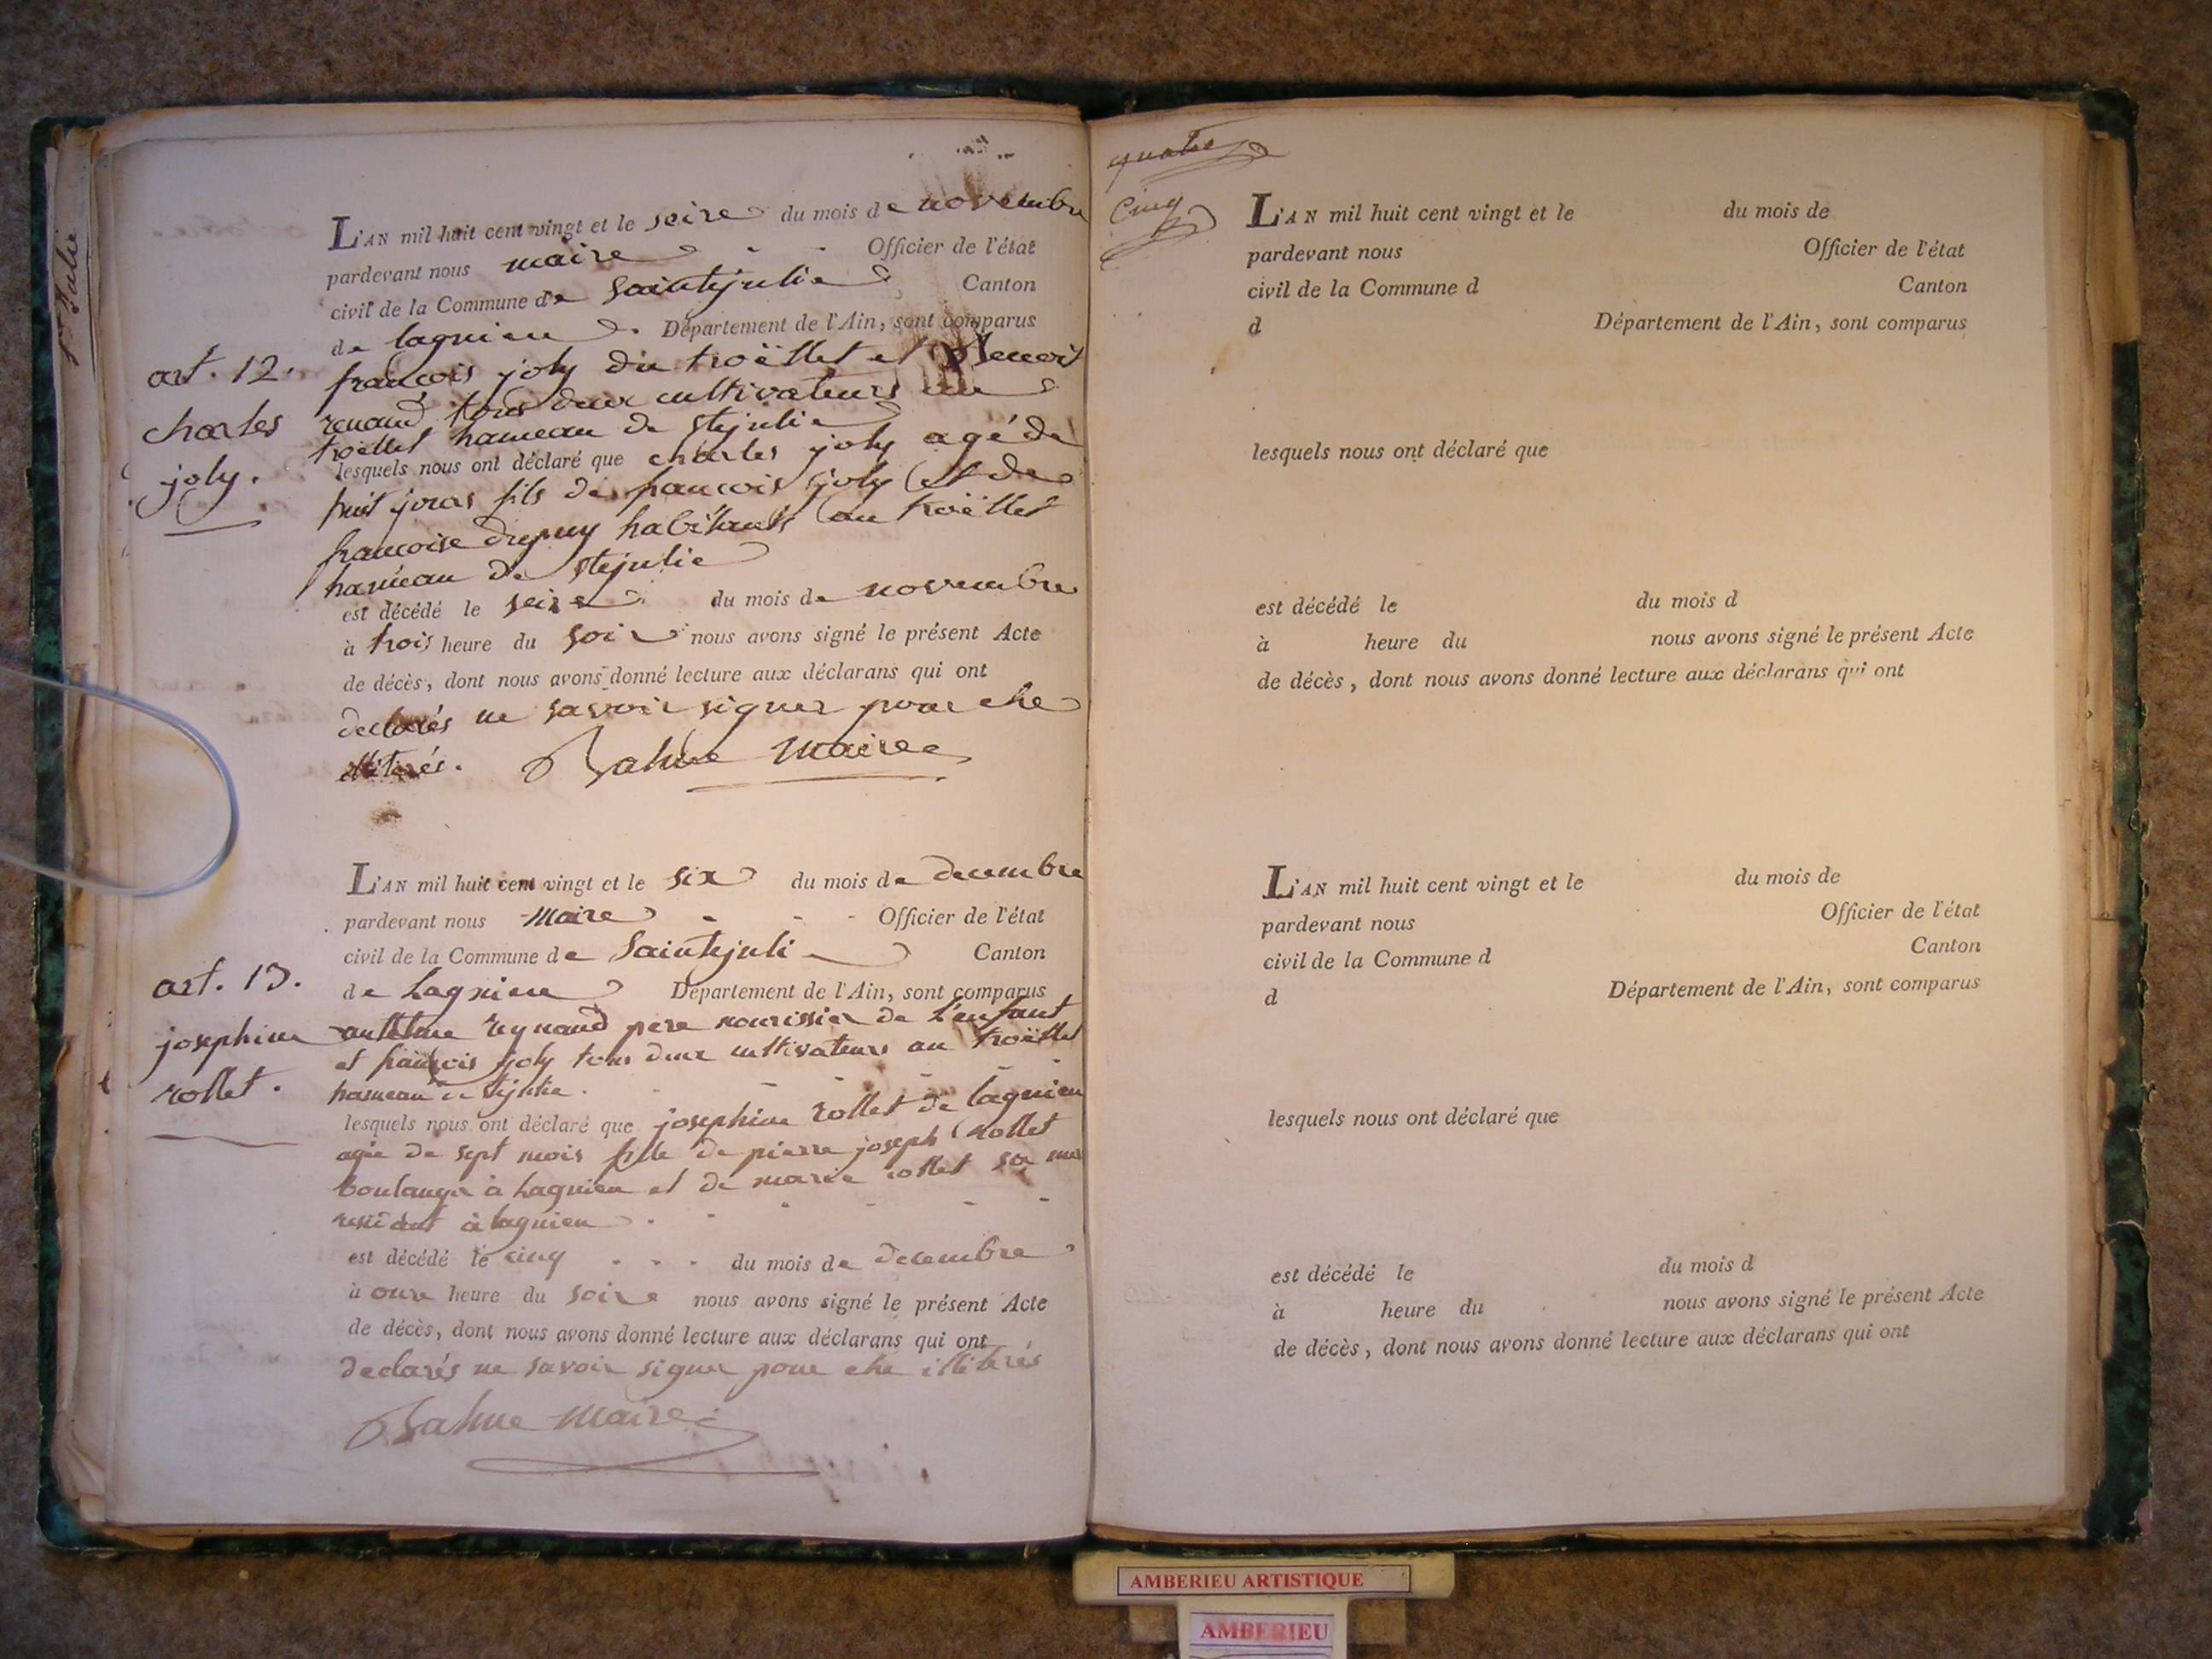 Ste Julie
L'AN mil huit cent vingt et le seize du mois de novembre
pardevant nous maire Officier de l'état
civil de la Commune de Saintejulie Canton
de lagnieu Département de l'Ain, sont comparus
art. 12.
charles
joly.
francois joly du troëllet et Benoit
renaud tous deux cultivateurs au
troëllet hameau de stejulie
lesquels nous ont déclaré que charles joly agé de
huit jours fils de francois joly et de
francoise dupuy habitants au troëllet
hameau de stejulie
est décédé le seize du mois de novembre
à trois heure du soir nous avons signé le présent Acte
de décès, dont nous avons donné lecture aux déclarans qui ont
declarés ne savoir signer pour etre
illiterés. maire
L'AN mil huit cent vingt et le six du mois de decembre
pardevant nous Maire Officier de l'état
civil de la Commune de Saintejuli Canton
de Lagnieu Département de l'Ain, sont comparus
art. 13.
josephine
rollet.
antelme reynaud pere nourissier de L'enfant
et francois joly tous deux cultivateurs au troëllet
hameau de stejulie.
lesquels nous ont déclaré que josephine rollet de lagnieu
agée de sept mois fille de pierre joseph rollet
boulanger à Lagnieu et de marie rollet sa mer
residant à lagnieu
est décédé le cinq du mois de decembre
à onze heure du soire nous avons signé le présent Acte
de décès, dont nous avons donné lecture aux déclarans qui ont
declarés ne savoir signer pour etre illiterés
maire
quatre
Cinq
L'AN mil huit cent vingt et le du mois de
pardevant nous Officier de l'état
civil de la Commune d Canton
d Département de l'Ain, sont comparus
lesquels nous ont déclaré que
est décédé le du mois d
à heure du nous avons signé le présent Acte
de décès, dont nous avons donné lecture aux déclarans qui ont
L'AN mil huit cent vingt et le du mois de
pardevant nous Officier de l'état
civil de la Commune d Canton
d Département de l'Ain, sont comparus
lesquels nous ont déclaré que
est décédé le du mois d
à heure du nous avons signé le présent Acte
de décès, dont nous avons donné lecture aux déclarans qui ont
AMBERIEU ARTISTIQUE
AMBERIEU